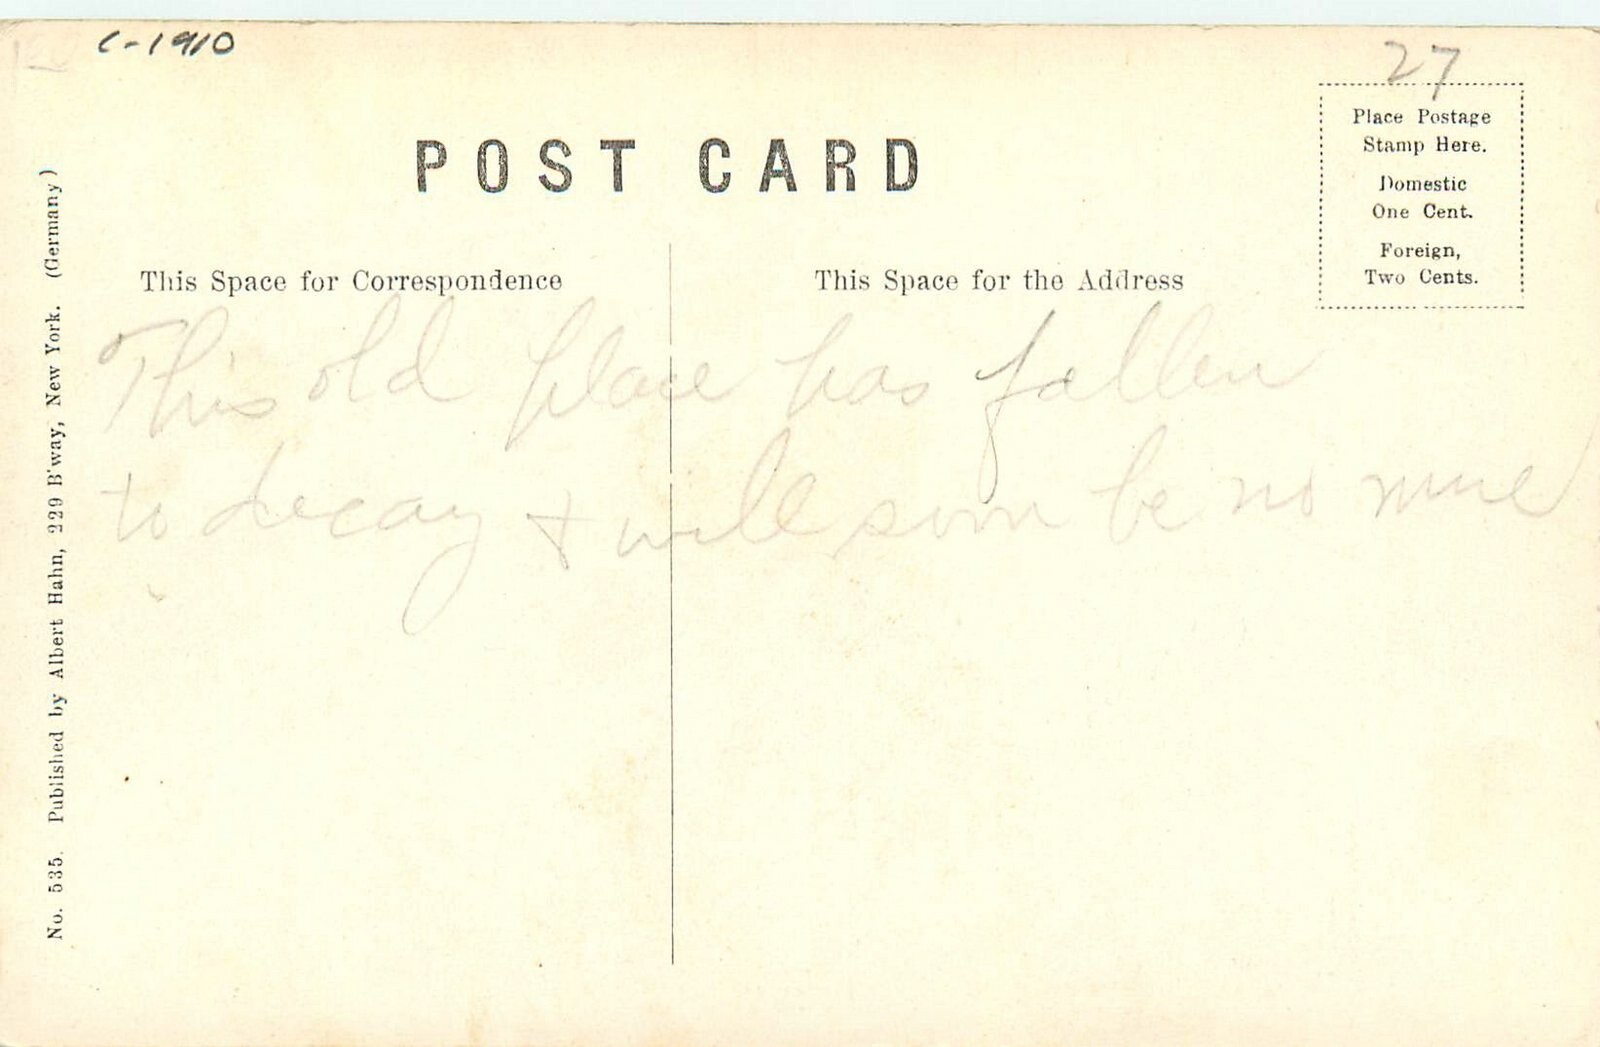 c-1910
27
POST CARD
Place Postage
Stamp Here.
Domestic
One Cent.
Foreign,
Two Cents.
This Space for Correspondence
This Space for the Address
This old place has fallen
to decay + will soon be no more
No. 535. Published by Albert Hahn, 229 B'way, New York. (Germany)